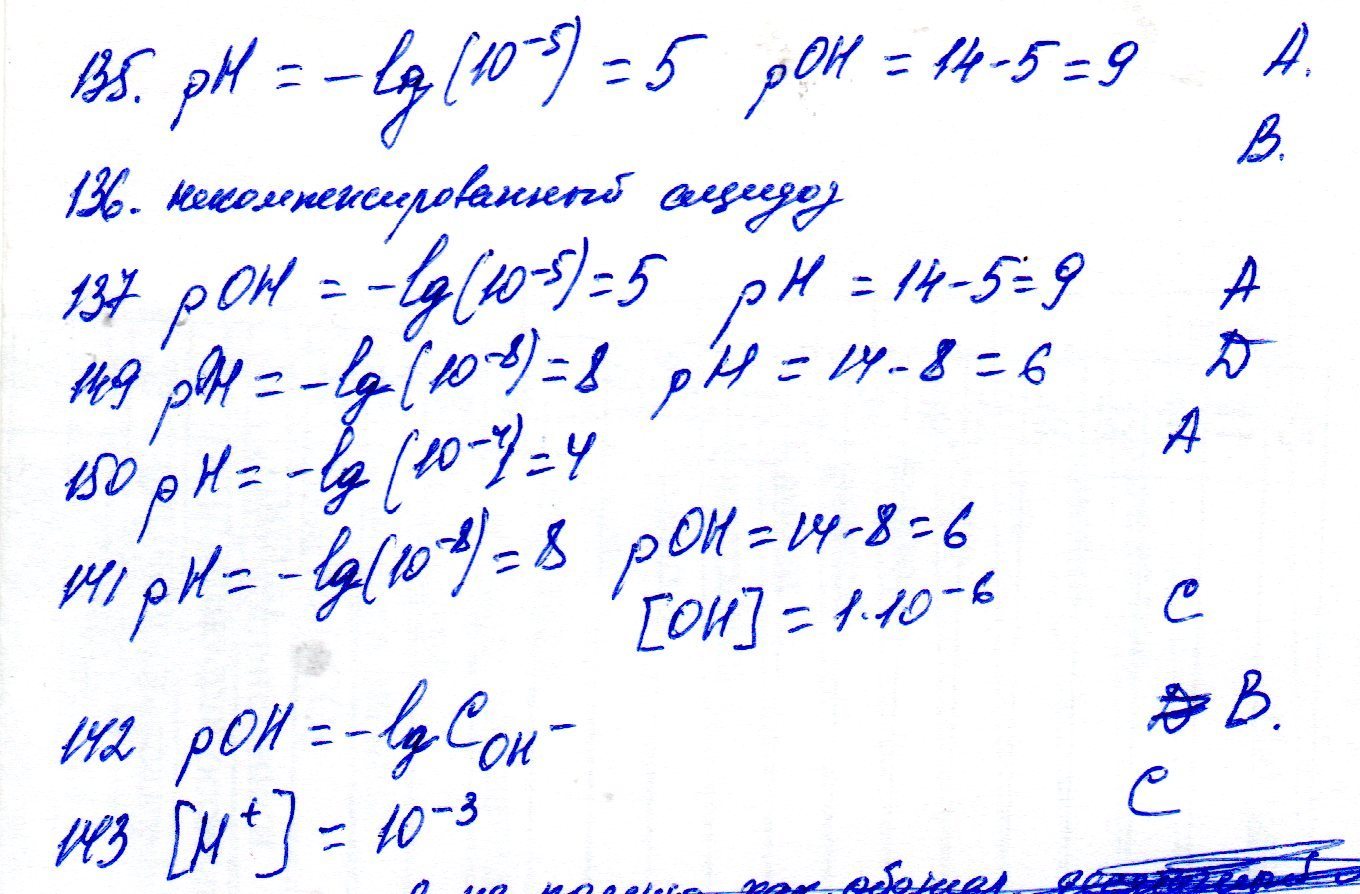 135. pH = -lg(10⁻⁵) = 5 pOH = 14-5=9 A.
B.
136. некомпенсированный ацидоз
137 pOH = -lg(10⁻⁵)=5 pH = 14-5=9 A
149 pOH = -lg(10⁻⁸)=8 pH = 14-8=6 D
150 pH = -lg(10⁻⁴)=4 A
141 pH = -lg(10⁻⁸)=8 pOH = 14-8=6
[OH] = 1·10⁻⁶ C
142 pOH = -lg C_OH⁻ B.
143 [H⁺] = 10⁻³ C